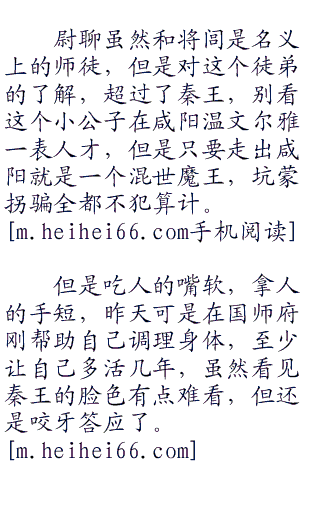 尉聊虽然和将闾是名义
上的师徒，但是对这个徒弟
的了解，超过了秦王，别看
这个小公子在咸阳温文尔雅
一表人才，但是只要走出咸
阳就是一个混世魔王，坑蒙
拐骗全都不犯算计。
[m.heihei66.com手机阅读]
但是吃人的嘴软，拿人
的手短，昨天可是在国师府
刚帮助自己调理身体，至少
让自己多活几年，虽然看见
秦王的脸色有点难看，但还
是咬牙答应了。
[m.heihei66.com]